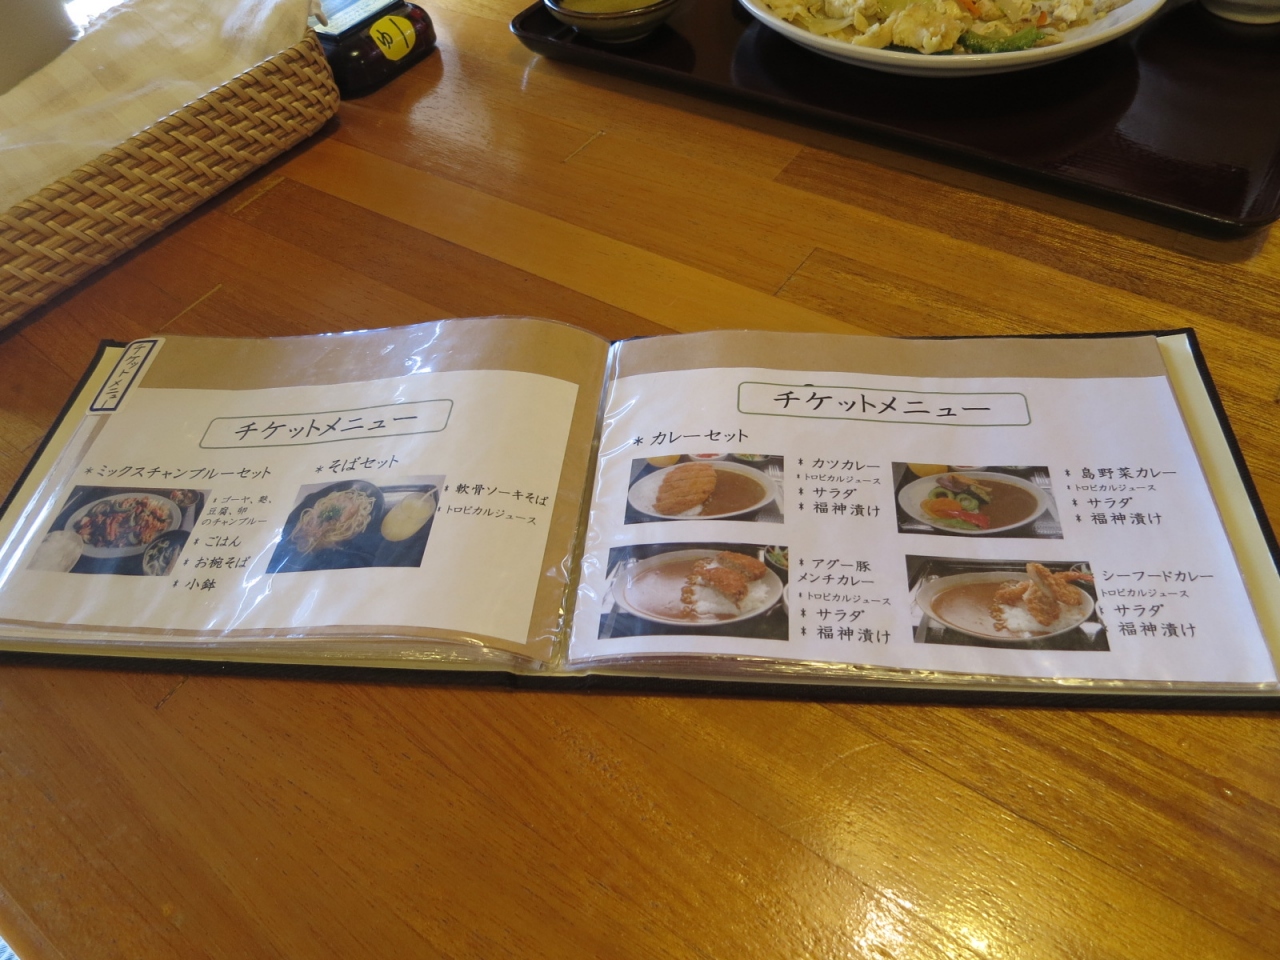 ゆ
チケットメニュー
チケットメニュー
*ミックスチャンプルーセット
*ゴーヤ、麩、
豆腐、卵
のチャンプルー
*ごはん
*お椀そば
*小鉢
*そばセット
*軟骨ソーキそば
*トロピカルジュース
チケットメニュー
*カレーセット
*カツカレー
*トロピカルジュース
*サラダ
*福神漬け
*島野菜カレー
*トロピカルジュース
*サラダ
*福神漬け
*アグー豚
メンチカレー
*トロピカルジュース
*サラダ
*福神漬け
シーフードカレー
トロピカルジュース
*サラダ
*福神漬け